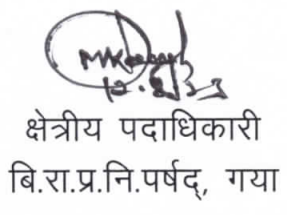 क्षेत्रीय पदाधिकारी
बि.रा.प्र.नि.पर्षद्, गया